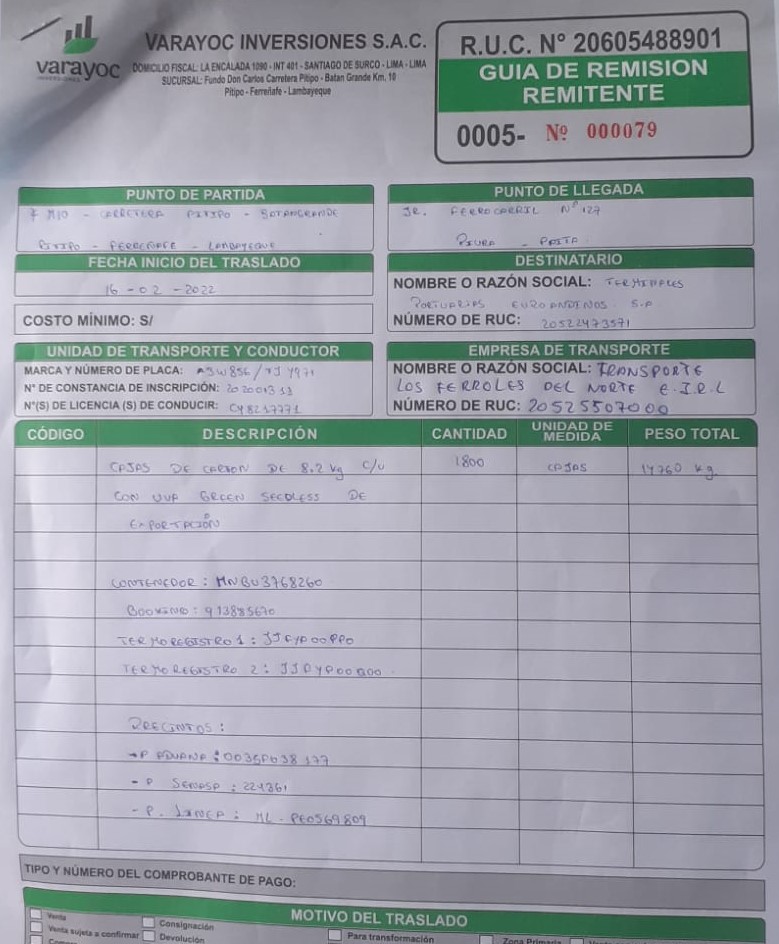 varayoc
VARAYOC INVERSIONES S.A.C.
DOMICILIO FISCAL: LA ENCALADA 1090 - INT 401 - SANTIAGO DE SURCO - LIMA - LIMA
SUCURSAL: Fundo Don Carlos Carretera Pitipo - Batan Grande Km. 10
Pitipo - Ferreñafe - Lambayeque
R.U.C. N° 20605488901
GUIA DE REMISION
REMITENTE
0005- Nº 000079
PUNTO DE PARTIDA
CARRETERA PITIPO - BATANGRANDE
PITIPO - FERREÑAFE - LAMBAYEQUE
PUNTO DE LLEGADA
JR. FERROCARRIL N° 127
PIURA - PAITA
FECHA INICIO DEL TRASLADO
16 - 02 - 2022
COSTO MÍNIMO: S/
DESTINATARIO
NOMBRE O RAZÓN SOCIAL: TERMINALES
PORTUARIOS EUROANDINOS S.A
NÚMERO DE RUC: 20522473571
UNIDAD DE TRANSPORTE Y CONDUCTOR
MARCA Y NÚMERO DE PLACA:
N° DE CONSTANCIA DE INSCRIPCIÓN:
N°(S) DE LICENCIA (S) DE CONDUCIR:
EMPRESA DE TRANSPORTE
NOMBRE O RAZÓN SOCIAL: TRANSPORTE
LOS FERROLES DEL NORTE E.I.R.L
NÚMERO DE RUC: 20525507000
CÓDIGO DESCRIPCIÓN CANTIDAD UNIDAD DE MEDIDA PESO TOTAL
CAJAS DE CARTON DE 8.2 kg C/U 1800 CAJAS 14760 kg.
CON UVA GREEN SEEDLESS DE
EXPORTACIÓN
CONTENEDOR : MNBU3768260
BOOKING : 913885670
TERMOREGISTRO 1 :
TERMOREGISTRO 2 :
PRECINTOS :
- P ADUANA :
- P SENASA : 221361
- P. LINEA : ML - PE0569809
TIPO Y NÚMERO DEL COMPROBANTE DE PAGO:
MOTIVO DEL TRASLADO
Venta
Venta sujeta a confirmar
Consignación
Devolución
Para transformación
Zona Primaria